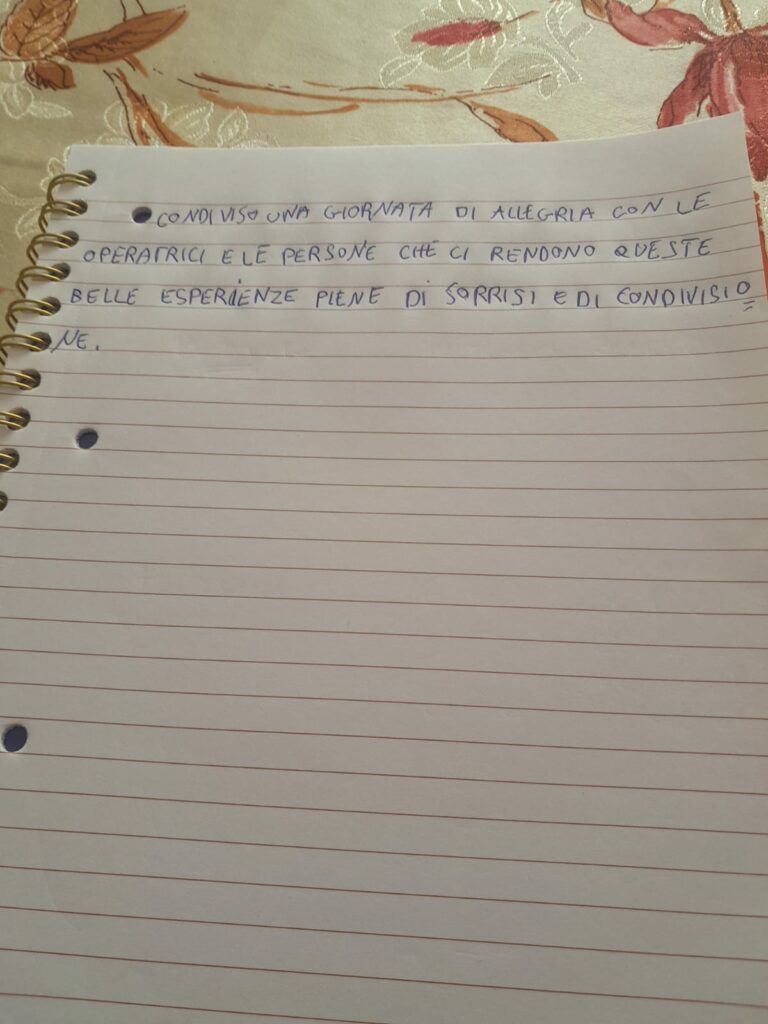 CONDIVISO UNA GIORNATA DI ALLEGRIA CON LE
OPERATRICI E LE PERSONE CHE CI RENDONO QUESTE
BELLE ESPERIENZE PIENE DI SORRISI E DI CONDIVISIO
NE.